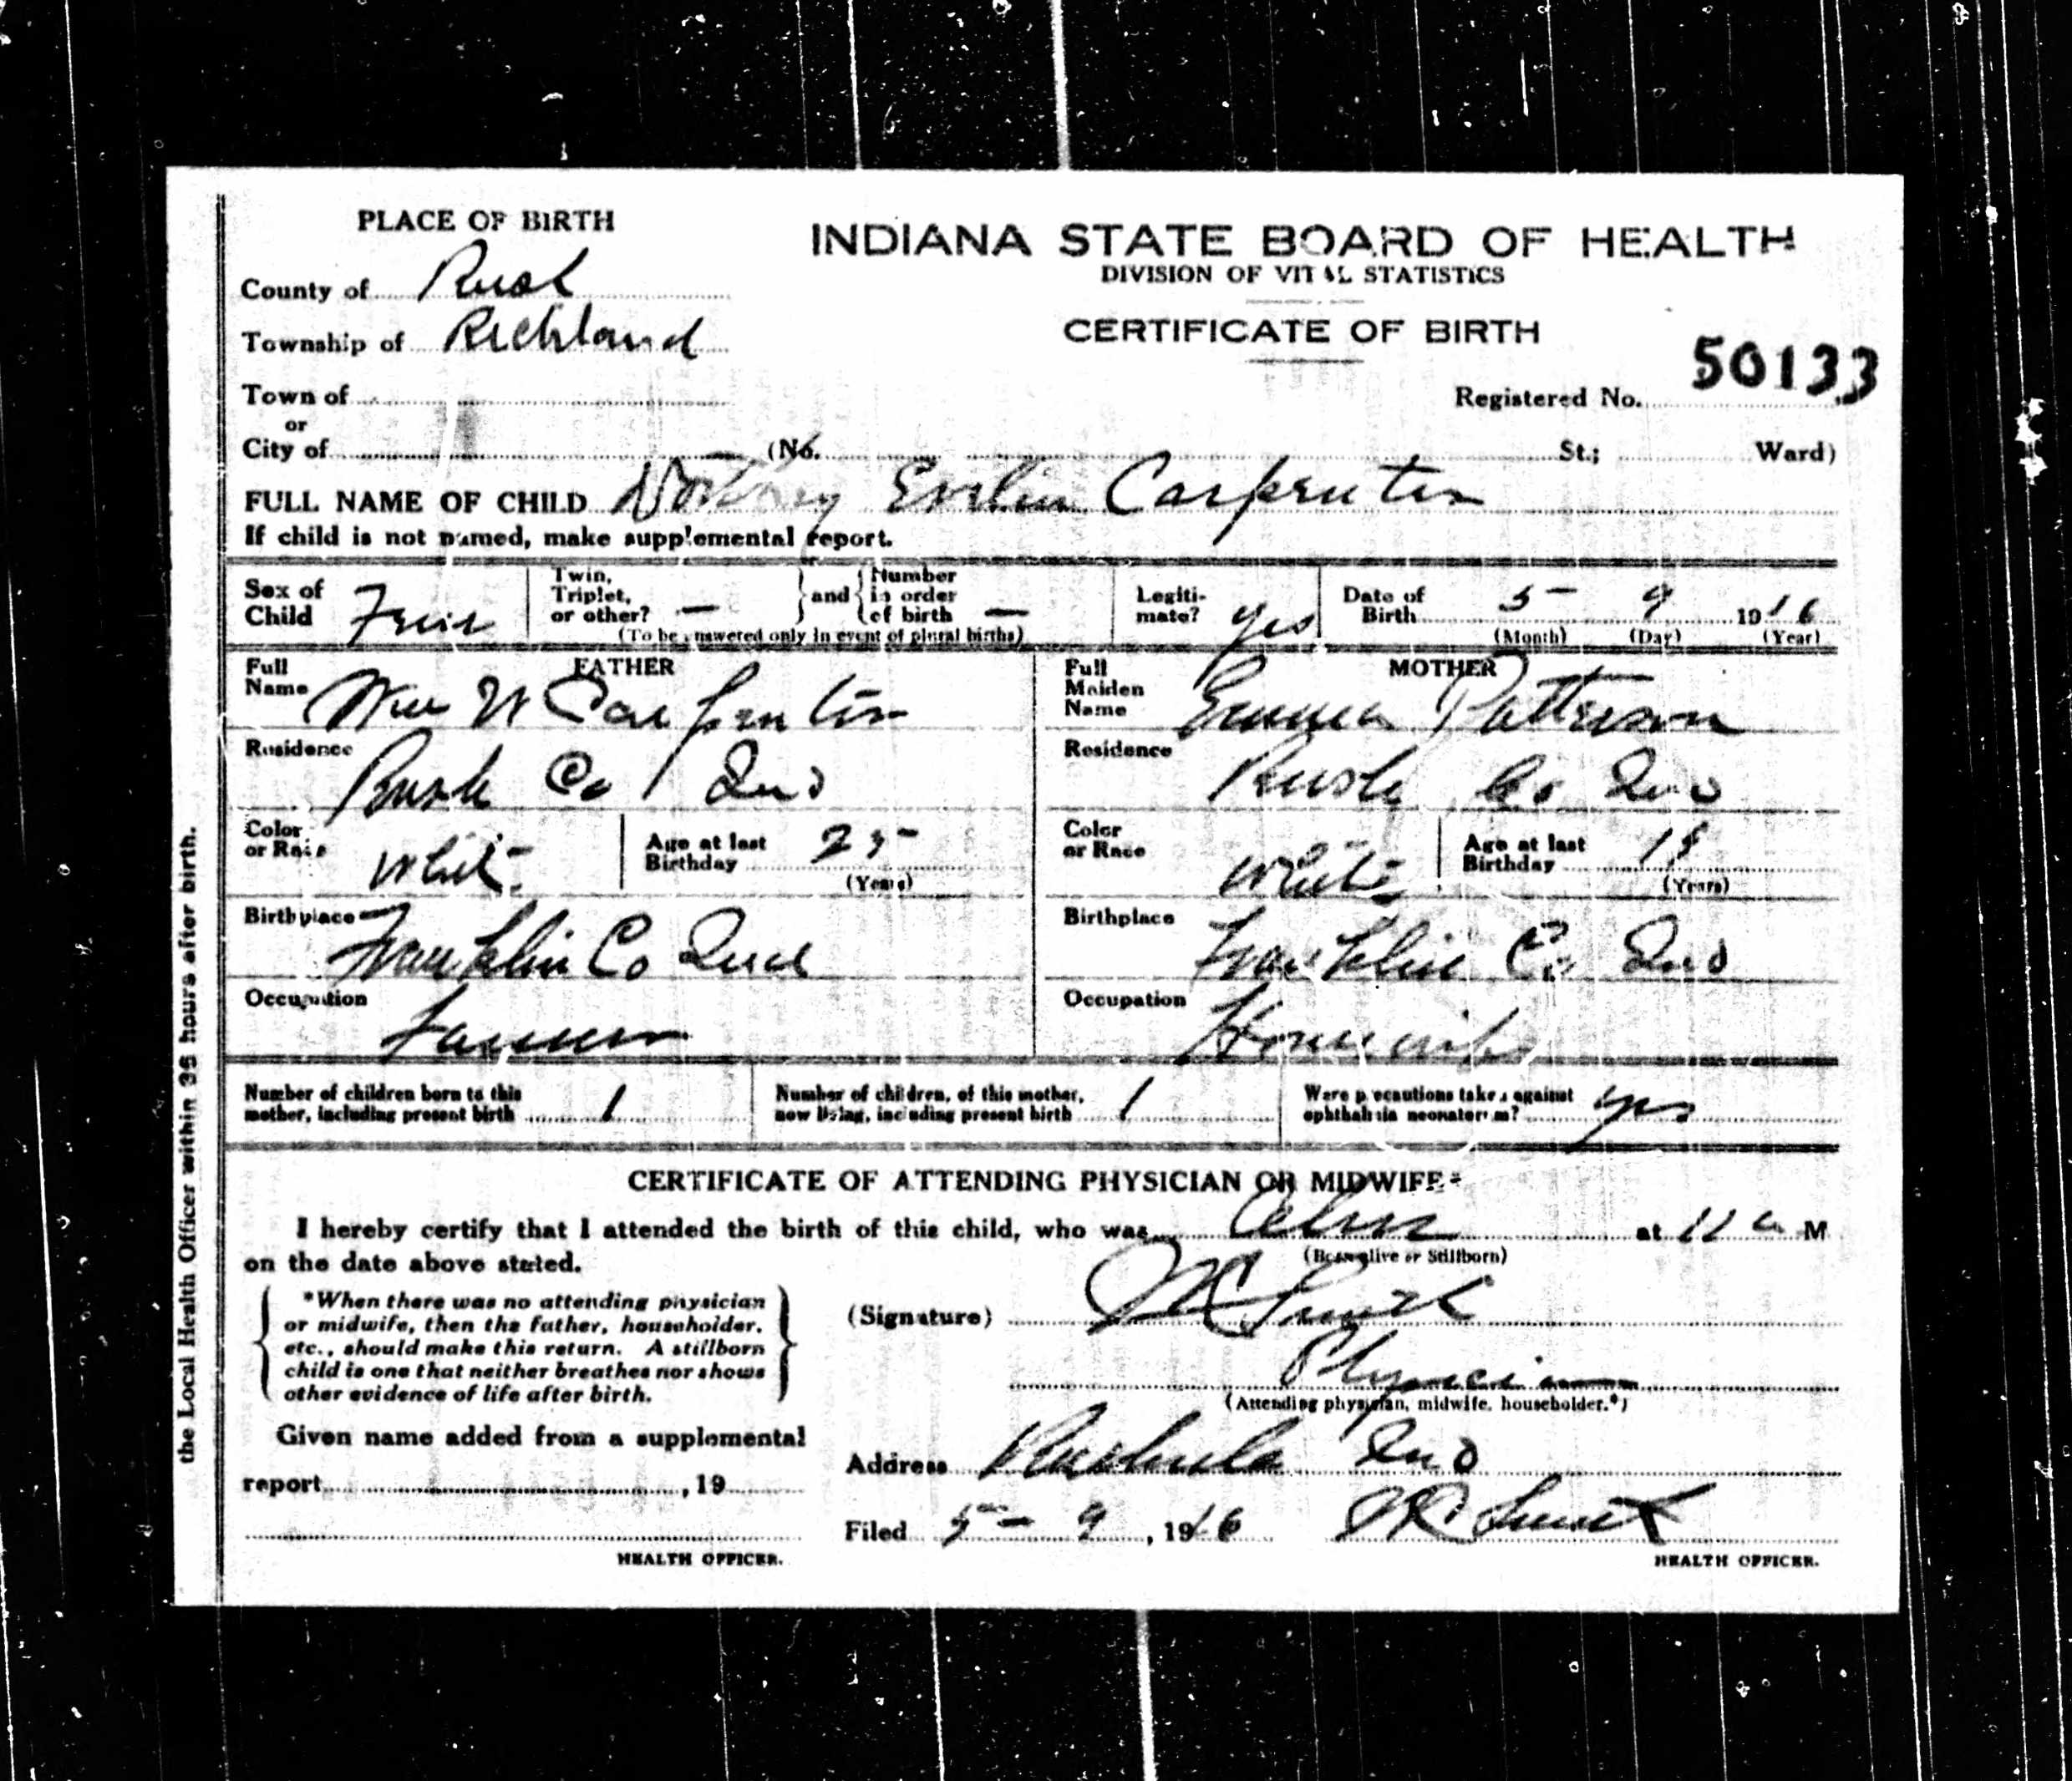 PLACE OF BIRTH
County of Rush
Township of Richland
Town of
or
City of (No. St.; Ward)
INDIANA STATE BOARD OF HEALTH
DIVISION OF VITAL STATISTICS
CERTIFICATE OF BIRTH
Registered No. 50133
FULL NAME OF CHILD Evelin Carpenter
If child is not named, make supplemental report.
Sex of Child Fem
Twin, Triplet, or other? — and Number in order of birth —
(To be answered only in event of plural births)
Legitimate? yes
Date of Birth 5 - 9 1916
(Month) (Day) (Year)
FATHER
Full Name Wm W Carpenter
Residence Rush Co Ind
Color or Race White
Age at last Birthday 25
(Years)
Birthplace Franklin Co Ind
Occupation Farmer
MOTHER
Full Maiden Name Emma Patterson
Residence Rush Co Ind
Color or Race White
Age at last Birthday 18
(Years)
Birthplace Franklin Co Ind
Occupation Housewife
Number of children born to this mother, including present birth 1
Number of children, of this mother, now living, including present birth 1
Were precautions taken against ophthalmia neonatorum? yes
CERTIFICATE OF ATTENDING PHYSICIAN OR MIDWIFE*
I hereby certify that I attended the birth of this child, who was at 11 a M
(Born alive or Stillborn)
on the date above stated.
*When there was no attending physician
or midwife, then the father, householder,
etc., should make this return. A stillborn
child is one that neither breathes nor shows
other evidence of life after birth.
(Signature)
Physician
(Attending physician, midwife, householder.*)
Given name added from a supplemental
report , 19
HEALTH OFFICER.
Address Rushville Ind
Filed 5 - 9 , 1916
HEALTH OFFICER.
the Local Health Officer within 36 hours after birth.